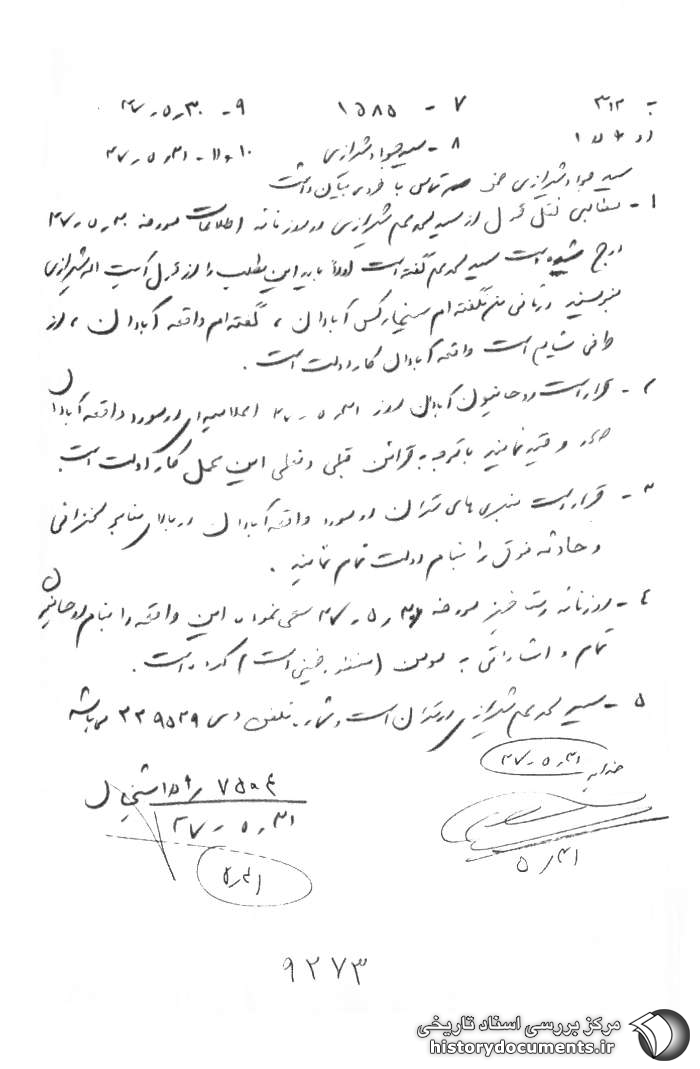 به ۳۱۲ ۷ - ۱۵۸۵ ۹ - ۳۰ر۵ر۳۷
از ۵۱۶ ۸ - سیدجواد شیرازی ۱۰و۱۱ - ۳۱ر۵ر۳۷
سید جواد شیرازی ضمن تماس با فردی بیان داشت
۱ - مطالبی نقل قول از سید محمدعلی شیرازی در روزنامه اطلاعات مورخه ۳۰ر۵ر۳۷
درج شده است سید محمدعلی گفته است اولاً باید این مطلب را از قول آیت اله شیرازی
بنویسند و ثانی من نگفته ام سینما رکس آبادان ، گفته ام واقعه آبادان ، از
طرفی شایع است واقعه آبادان کار دولت است .
۲ - قرار است روحانیون آبادان روز ۳۱ر۵ر۳۷ اعلامیه ای در مورد واقعه آبادان
صادر و قید نمایند با توجه به قرائن قبلی و فعلی این عمل کار دولت است
۳ - قرار است منبری های تهران در مورد واقعه آبادان در بالای منابر سخنرانی
و حادثه فوق را بنام دولت تمام نمایند .
۴ - روزنامه رستاخیز مورخه ۳۱ر۵ر۳۷ سعی نموده این واقعه را بنام روحانیون
تمام و اشاراتی به مومن (منظور خمینی است) کرده است .
۵ - سید محمدعلی شیرازی در تهران است و شماره تلفن وی ۳۳۹۵۲۹ میباشد
۳۱ر۵ر۳۷
۳۱ر۵ر۳۷
۳۱ر۵
۳۱ر۵
۹۲۷۳
مرکز بررسی اسناد تاریخی
historydocuments.ir